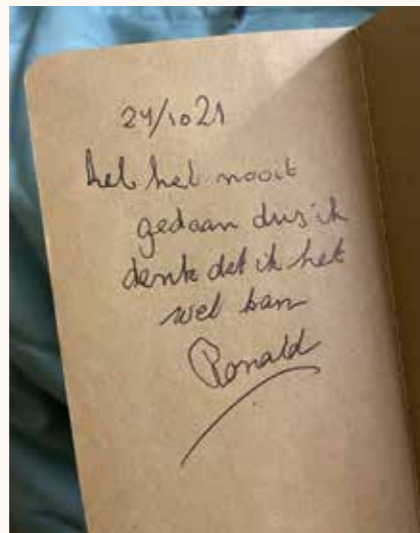 24/10 21
heb het nooit
gedaan dus ik
denk dat ik het
wel kan
Ronald